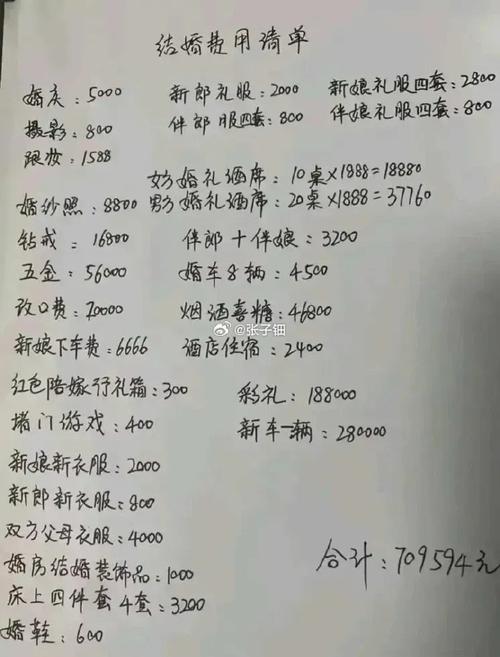 结婚费用清单
婚庆：5000 新郎礼服：2000 新娘礼服四套：2800
摄影：800 伴郎服四套：800 伴娘礼服四套：800
跟妆：1588
女方婚礼酒席：10桌×1888=18880
婚纱照：8800 男方婚礼酒席：20桌×1888=37760
钻戒：16800 伴郎十伴娘：3200
五金：56000 婚车8辆：4500
改口费：20000 烟酒喜糖：46800
@张子钿
新娘下车费：6666 酒店住宿：2400
红色陪嫁行礼箱：300 彩礼：188000
堵门游戏：400 新车一辆：280000
新娘新衣服：2000
新郎新衣服：800
双方父母衣服：4000
婚房结婚装饰品：1000 合计：709594元
床上四件套4套：3200
婚鞋：600